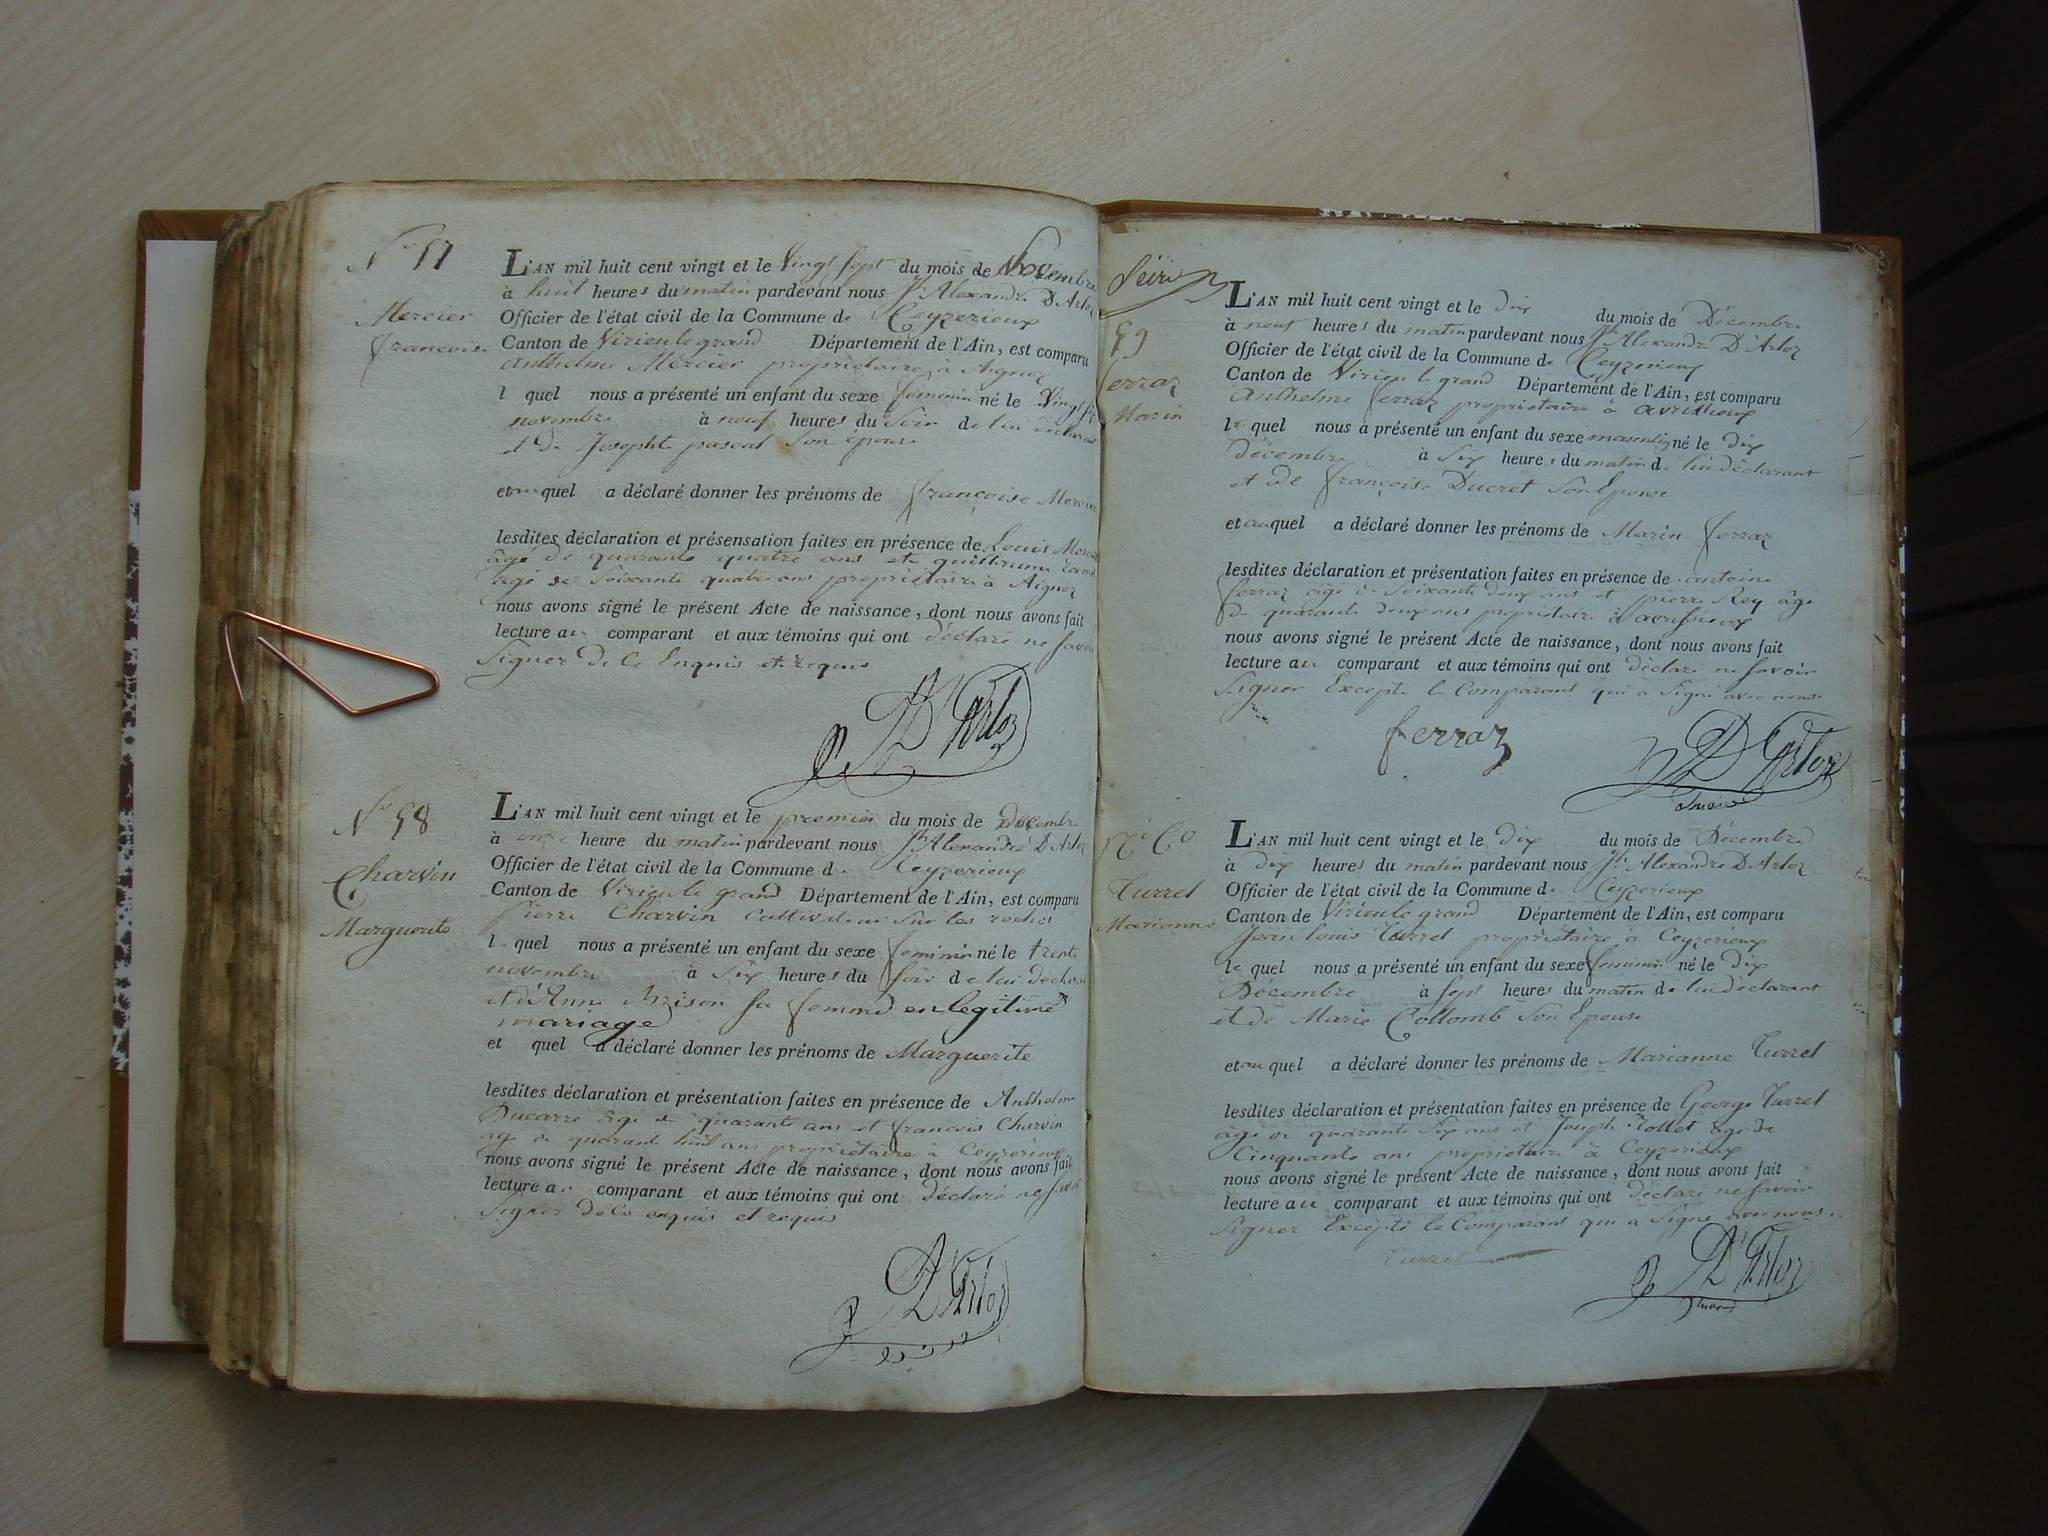 N° 57
Mercier
françoise
L'AN mil huit cent vingt et le Vingt sept du mois de Novembre
à huit heures du matin pardevant nous Jh Alexandre D'Arloz
Officier de l'état civil de la Commune de Ceyzerieux
Canton de Virieu le grand Département de l'Ain, est comparu
Anthelme Mercier propriétaire à Aignoz
lequel nous a présenté un enfant du sexe féminin né le Vingt six
novembre à neuf heures du Soir de lui déclarant
et de Josephte pascal Son épouse
et auquel a déclaré donner les prénoms de françoise Mercier
lesdites déclaration et présensation faites en présence de Louis Mercier
âgé de quarante quatre ans et guillaume
âgé de Soixante quatre ans propriétaire à Aignoz
nous avons signé le présent Acte de naissance, dont nous avons fait
lecture au comparant et aux témoins qui ont déclaré ne savoir
Signer de Ce Enquis et requis
D'Arloz
N° 58
Charvin
Marguerite
L'AN mil huit cent vingt et le premier du mois de Décembre
à onze heure du matin pardevant nous Jh Alexandre D'Arloz
Officier de l'état civil de la Commune de Ceyzerieux
Canton de Virieu le grand Département de l'Ain, est comparu
Pierre Charvin Cultivateur Sur les roches
lequel nous a présenté un enfant du sexe féminin né le trente
novembre à Six heures du soir de lui déclarant
et d'Anne sa femme en legitime
mariage
et quel a déclaré donner les prénoms de Marguerite
lesdites déclaration et présentation faites en présence de Anthelme
Ducarre âgé de quarante ans et françois Charvin
agé de quarant huit ans propriétaire à Ceyzerieux
nous avons signé le présent Acte de naissance, dont nous avons fait
lecture au comparant et aux témoins qui ont déclaré ne savoir
Signer de Ce enquis et requis
D'Arloz
59
ferraz
Marin
L'AN mil huit cent vingt et le dix du mois de Décembre
à neuf heures du matin pardevant nous Jh Alexandre D'Arloz
Officier de l'état civil de la Commune de Ceyzerieux
Canton de Virieu le grand Département de l'Ain, est comparu
Anthelme ferraz propriétaire à avrissieux
lequel nous a présenté un enfant du sexe masculin né le dix
décembre à Six heures du matin de lui déclarant
et de françoise Ducret Son Epouse
et auquel a déclaré donner les prénoms de Marin ferraz
lesdites déclaration et présentation faites en présence de antoine
ferraz âgé de Soixante deux ans et pierre Rey âgé
de quarante deux ans propriétaire à avrissieux
nous avons signé le présent Acte de naissance, dont nous avons fait
lecture au comparant et aux témoins qui ont déclaré ne savoir
Signer Excepté le Comparant qui a Signé avec nous
ferraz
D'Arloz
N° 60
Turrel
Marianne
L'AN mil huit cent vingt et le Dix du mois de Décembre
à dix heures du matin pardevant nous Jh Alexandre D'Arloz
Officier de l'état civil de la Commune de Ceyzerieux
Canton de Virieu le grand Département de l'Ain, est comparu
Jean louis Turrel propriétaire à Ceyzerieux
lequel nous a présenté un enfant du sexe féminin né le Dix
Décembre à Sept heures du matin de lui déclarant
et de Marie Collomb Son Epouse
et auquel a déclaré donner les prénoms de Marianne Turrel
lesdites déclaration et présentation faites en présence de George Turrel
âgé de quarante Six ans et Joseph Rollet âgé de
Cinquante ans propriétaire à Ceyzerieux
nous avons signé le présent Acte de naissance, dont nous avons fait
lecture au comparant et aux témoins qui ont déclaré ne savoir
Signer Excepté le Comparant qui a Signé avec nous
Turrel
D'Arloz